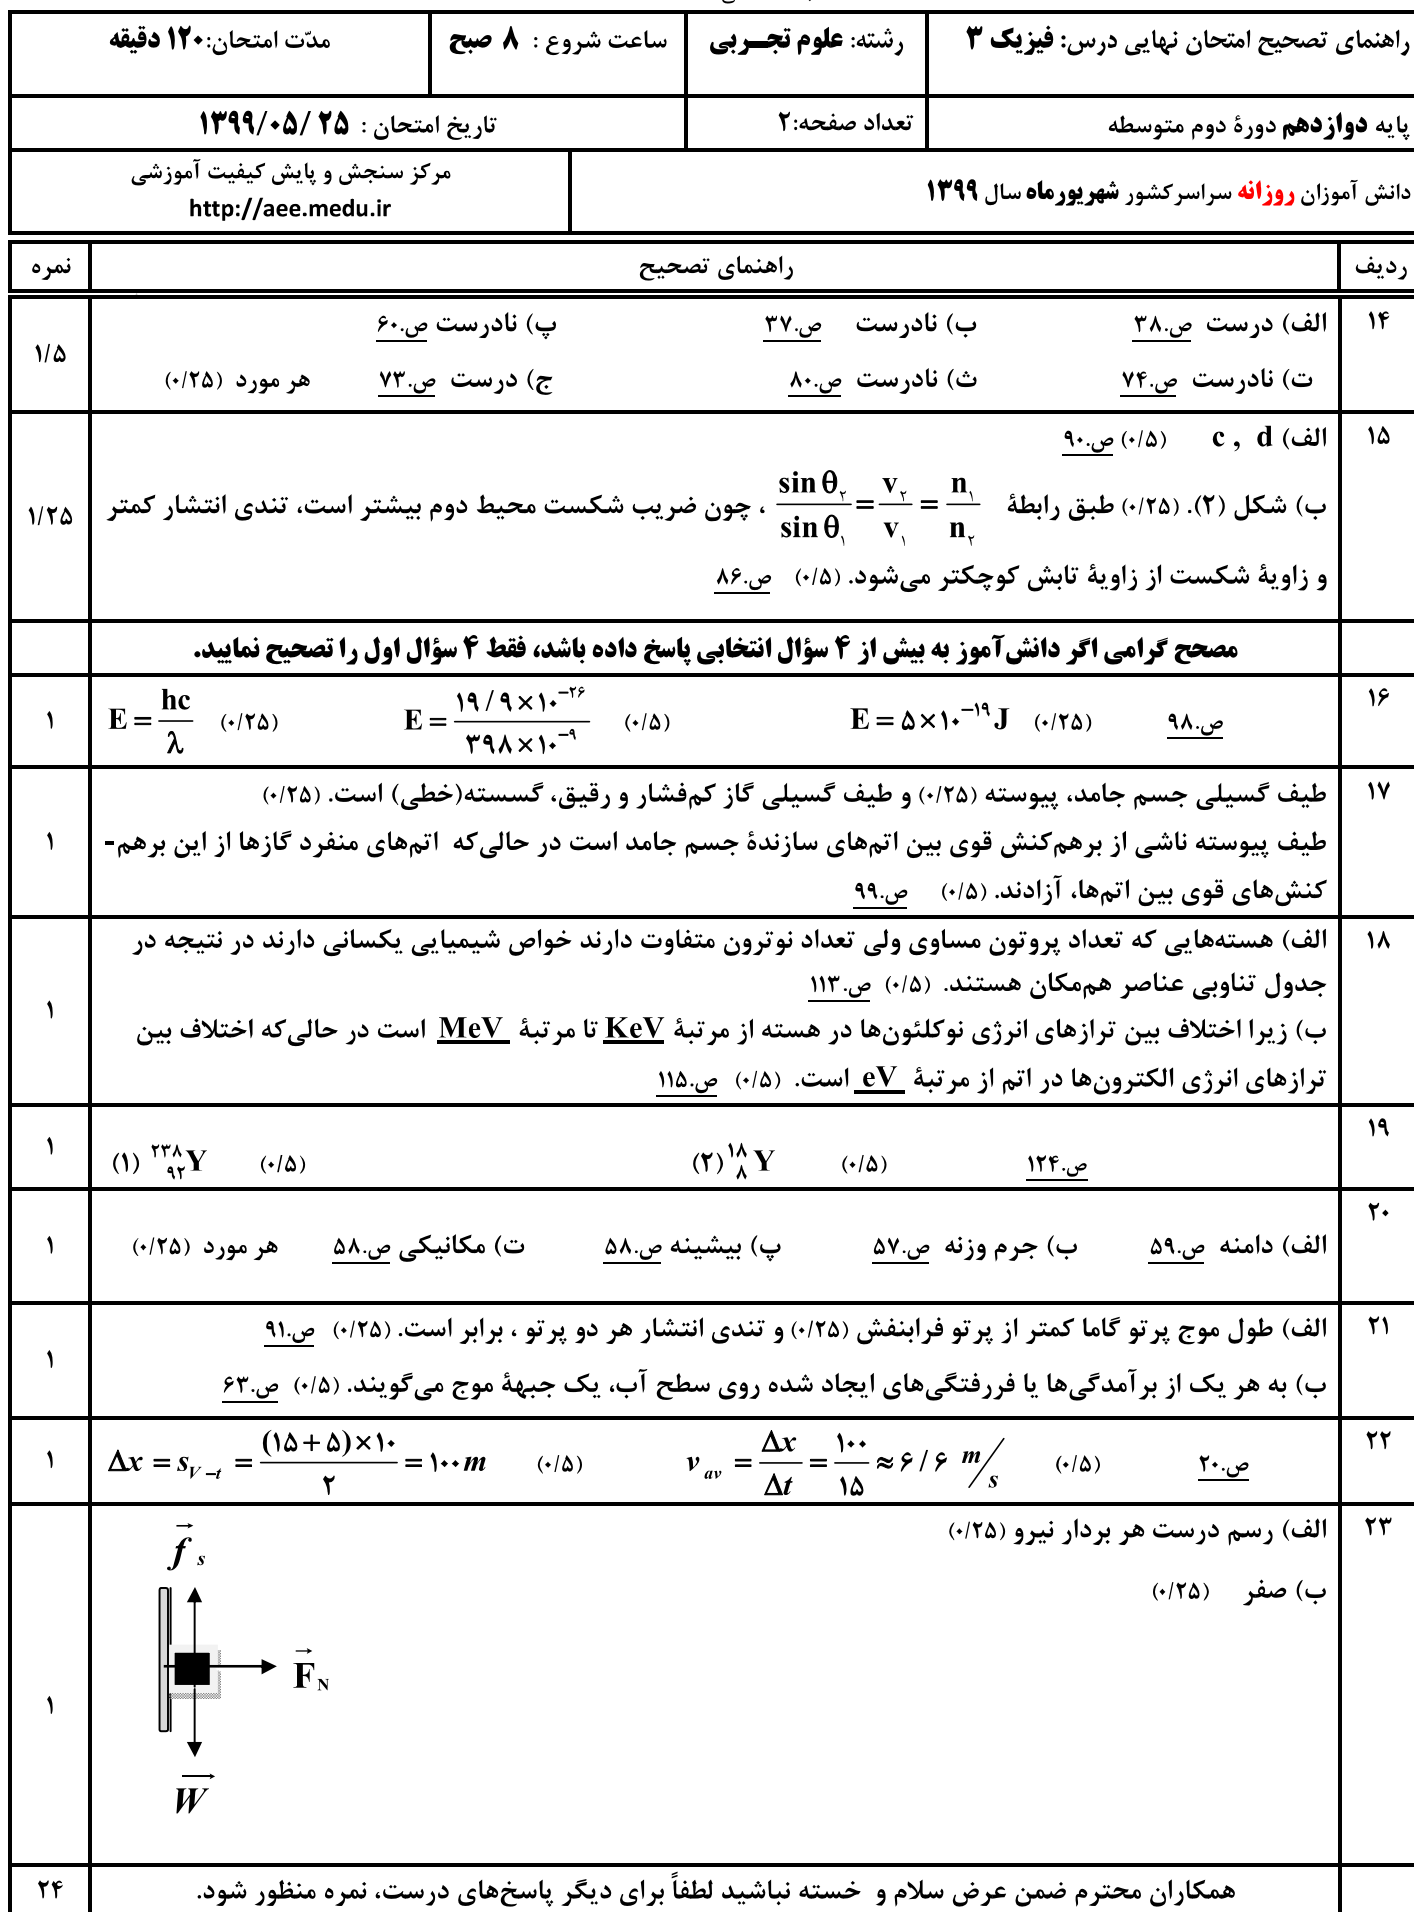 راهنمای تصحیح امتحان نهایی درس: فیزیک ۳ رشته: علوم تجـــربی ساعت شروع : ۸ صبح مدّت امتحان:۱۲۰ دقیقه
پایه دوازدهم دورهٔ دوم متوسطه تعداد صفحه:۲ تاریخ امتحان : ۲۵ /۱۳۹۹/۰۵
دانش آموزان روزانه سراسرکشور شهریورماه سال ۱۳۹۹ مرکز سنجش و پایش کیفیت آموزشی
http://aee.medu.ir
ردیف راهنمای تصحیح نمره
۱۴ الف) درست ص.۳۸ ب) نادرست ص.۳۷ پ) نادرست ص.۶۰
ت) نادرست ص.۷۴ ث) نادرست ص.۸۰ ج) درست ص.۷۳ هر مورد (۰/۲۵) ۱/۵
۱۵ الف) c , d (۰/۵) ص.۹۰
ب) شکل (۲). (۰/۲۵) طبق رابطهٔ sin θ۲ / sin θ۱ = v۲ / v۱ = n۱ / n۲ ، چون ضریب شکست محیط دوم بیشتر است، تندی انتشار کمتر ۱/۲۵
و زاویهٔ شکست از زاویهٔ تابش کوچکتر می‌شود. (۰/۵) ص.۸۶
مصحح گرامی اگر دانش‌آموز به بیش از ۴ سؤال انتخابی پاسخ داده باشد، فقط ۴ سؤال اول را تصحیح نمایید.
۱۶ E = hc / λ (۰/۲۵) E = ۱۹/۹×۱۰^−۲۶ / ۳۹۸×۱۰^−۹ (۰/۵) E = ۵×۱۰^−۱۹ J (۰/۲۵) ص.۹۸ ۱
۱۷ طیف گسیلی جسم جامد، پیوسته (۰/۲۵) و طیف گسیلی گاز کم‌فشار و رقیق، گسسته(خطی) است. (۰/۲۵)
طیف پیوسته ناشی از برهم‌کنش قوی بین اتم‌های سازندهٔ جسم جامد است در حالی‌که اتم‌های منفرد گازها از این برهم- ۱
کنش‌های قوی بین اتم‌ها، آزادند. (۰/۵) ص.۹۹
۱۸ الف) هسته‌هایی که تعداد پروتون مساوی ولی تعداد نوترون متفاوت دارند خواص شیمیایی یکسانی دارند در نتیجه در
جدول تناوبی عناصر هم‌مکان هستند. (۰/۵) ص.۱۱۳ ۱
ب) زیرا اختلاف بین ترازهای انرژی نوکلئون‌ها در هسته از مرتبهٔ KeV تا مرتبهٔ MeV است در حالی‌که اختلاف بین
ترازهای انرژی الکترون‌ها در اتم از مرتبهٔ eV است. (۰/۵) ص.۱۱۵
۱۹ (۱) ۲۳۸ ۹۲ Y (۰/۵) (۲) ۱۸ ۸ Y (۰/۵) ص.۱۲۴ ۱
۲۰ الف) دامنه ص.۵۹ ب) جرم وزنه ص.۵۷ پ) بیشینه ص.۵۸ ت) مکانیکی ص.۵۸ هر مورد (۰/۲۵) ۱
۲۱ الف) طول موج پرتو گاما کمتر از پرتو فرابنفش (۰/۲۵) و تندی انتشار هر دو پرتو ، برابر است. (۰/۲۵) ص.۹۱ ۱
ب) به هر یک از برآمدگی‌ها یا فررفتگی‌های ایجاد شده روی سطح آب، یک جبههٔ موج می‌گویند. (۰/۵) ص.۶۳
۲۲ Δx = s_V−t = (۱۵+۵)×۱۰ / ۲ = ۱۰۰ m (۰/۵) v_av = Δx / Δt = ۱۰۰ / ۱۵ ≈ ۶/۶ m/s (۰/۵) ص.۲۰ ۱
۲۳ الف) رسم درست هر بردار نیرو (۰/۲۵)
ب) صفر (۰/۲۵) ۱
f s
F N
W
همکاران محترم ضمن عرض سلام و خسته نباشید لطفاً برای دیگر پاسخ‌های درست، نمره منظور شود. ۲۴